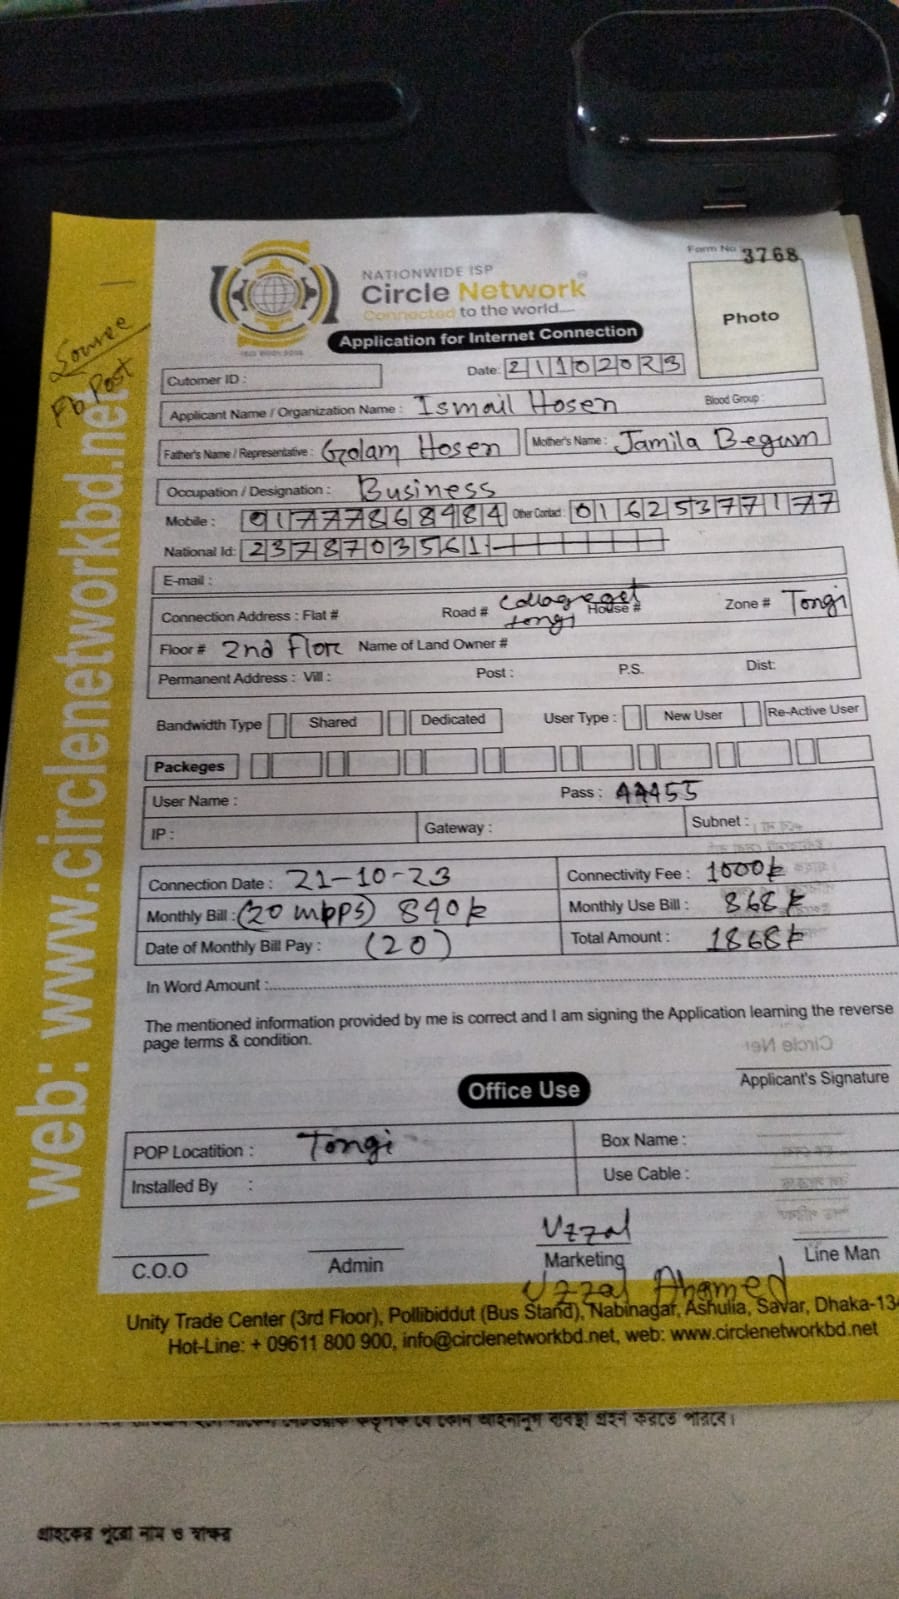 Form No 3768
NATIONWIDE ISP
Circle Network
Connected to the world....
Application for Internet Connection
Photo
Source
Fb Post
web: www.circlenetworkbd.net
Cutomer ID :
Date: 21102023
Applicant Name / Organization Name : Ismail Hosen Blood Group :
Father's Name / Representative : Golam Hosen Mother's Name : Jamila Begum
Occupation / Designation : Business
Mobile : 01777868484 Other Contact : 01625377177
National Id: 2378703561
E-mail :
Connection Address : Flat # Road # Collageget tongi House # Zone # Tongi
Floor # 2nd Flore Name of Land Owner #
Permanent Address : Vill : Post : P.S. Dist:
Bandwidth Type Shared Dedicated User Type : New User Re-Active User
Packeges
User Name : Pass : 44455
IP : Gateway : Subnet :
Connection Date : 21-10-23 Connectivity Fee : 1000৳
Monthly Bill : (20 mbps) 840৳ Monthly Use Bill : 868৳
Date of Monthly Bill Pay : (20) Total Amount : 1868৳
In Word Amount :
The mentioned information provided by me is correct and I am signing the Application learning the reverse
page terms & condition.
Applicant's Signature
Office Use
POP Locatition : Tongi Box Name :
Installed By : Use Cable :
Uzzal
C.O.O Admin Marketing Line Man
Uzzal Ahamed
Unity Trade Center (3rd Floor), Pollibiddut (Bus Stand), Nabinagar, Ashulia, Savar, Dhaka-134
Hot-Line: + 09611 800 900, info@circlenetworkbd.net, web: www.circlenetworkbd.net
যে কোন আইনানুগ ব্যবস্থা গ্রহন করতে পারবে।
গ্রাহকের পুরো নাম ও স্বাক্ষর